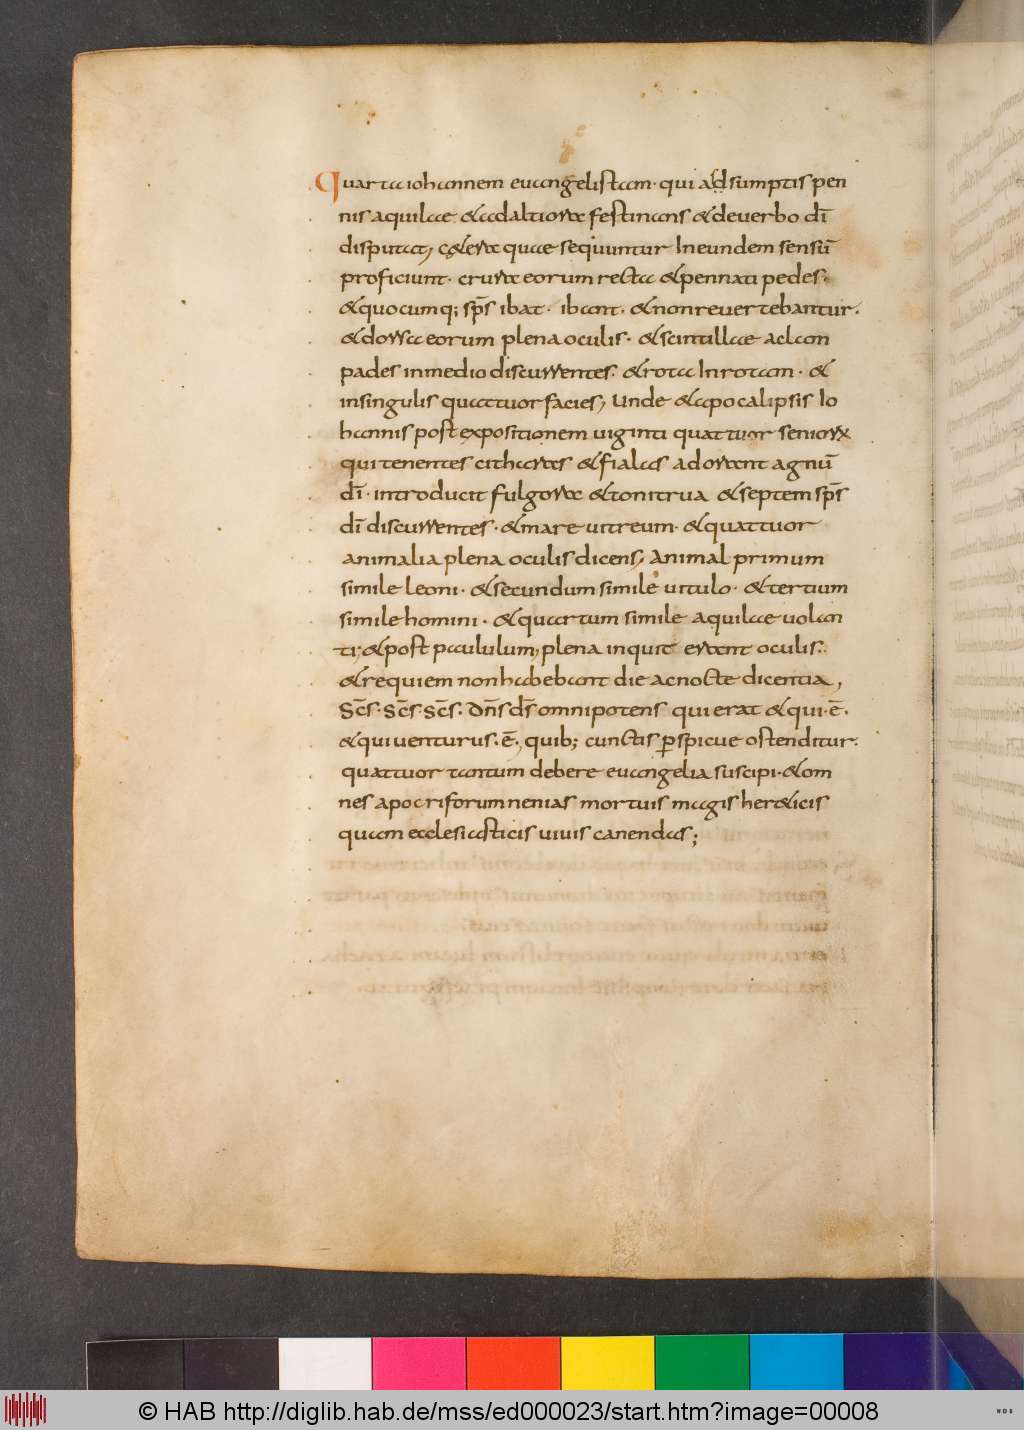 Quarta iohannem euangelistam· qui adsumptis pen
nis aquilae &ad altiora festinans &deuerbo dī
disputat, c&era quae sequuntur Ineundem sensū
proficiunt· crura eorum recta &pennati pedes·
&quocumq; sp̄s ibat· ibant· &nonreuertebantur·
&dorsa eorum plena oculis· &scintillae aclam
pades inmedio discurrentes· &rota Inrotam· &
insingulis quattuor facies, Unde &apocalipsis Io
hannis post expositionem uiginti quattuor seniorum
qui tenentes citharas &fialas adorant agnū
dī· introducit fulgora &tonitrua &septem sp̄s
dī discurrentes· &mare uitreum· &quattuor
animalia plena oculis dicens, Animal primum
simile leoni· &secundum simile uitulo· &tertium
simile homini· &quartum simile aquilae uolan
ti; &post paululum, plena inquit erant oculis·
&requiem nonhabebant die acnocte dicentia,
Sc̄s· Sc̄s· Sc̄s· Dn̄s ds̄ omnipotens qui erat &qui· ē·
&qui uenturus· ē·, quib; cunctis p̄spicue ostenditur·
quattuor tantum debere euangelia suscipi· &om
nes apocriforum nenias mortuis magis her&icis
quam ecclesiasticis uiuis canendas;
© HAB http://diglib.hab.de/mss/ed000023/start.htm?image=00008
WDB